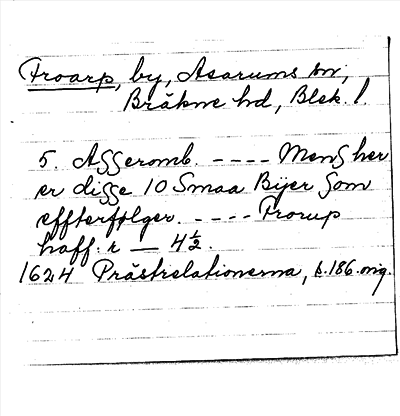 Froarp, by, Asarums sn,
Bräkne hd, Blek. l.
5. Aßeromb. ---- Menß her
er diße 10 Smaa Byer ßom
effterfølger. ---- Frorup
haff: r — 4½.
1624 Prästrelationerna, s. 186. orig.